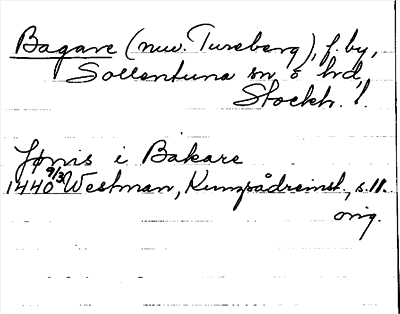 Bagare (nuv. Tureberg), f. by,
Sollentuna sn o hd,
Stockh. l.
Jønis i Bakare
1440 9/3 Westman, s. 11.
orig.